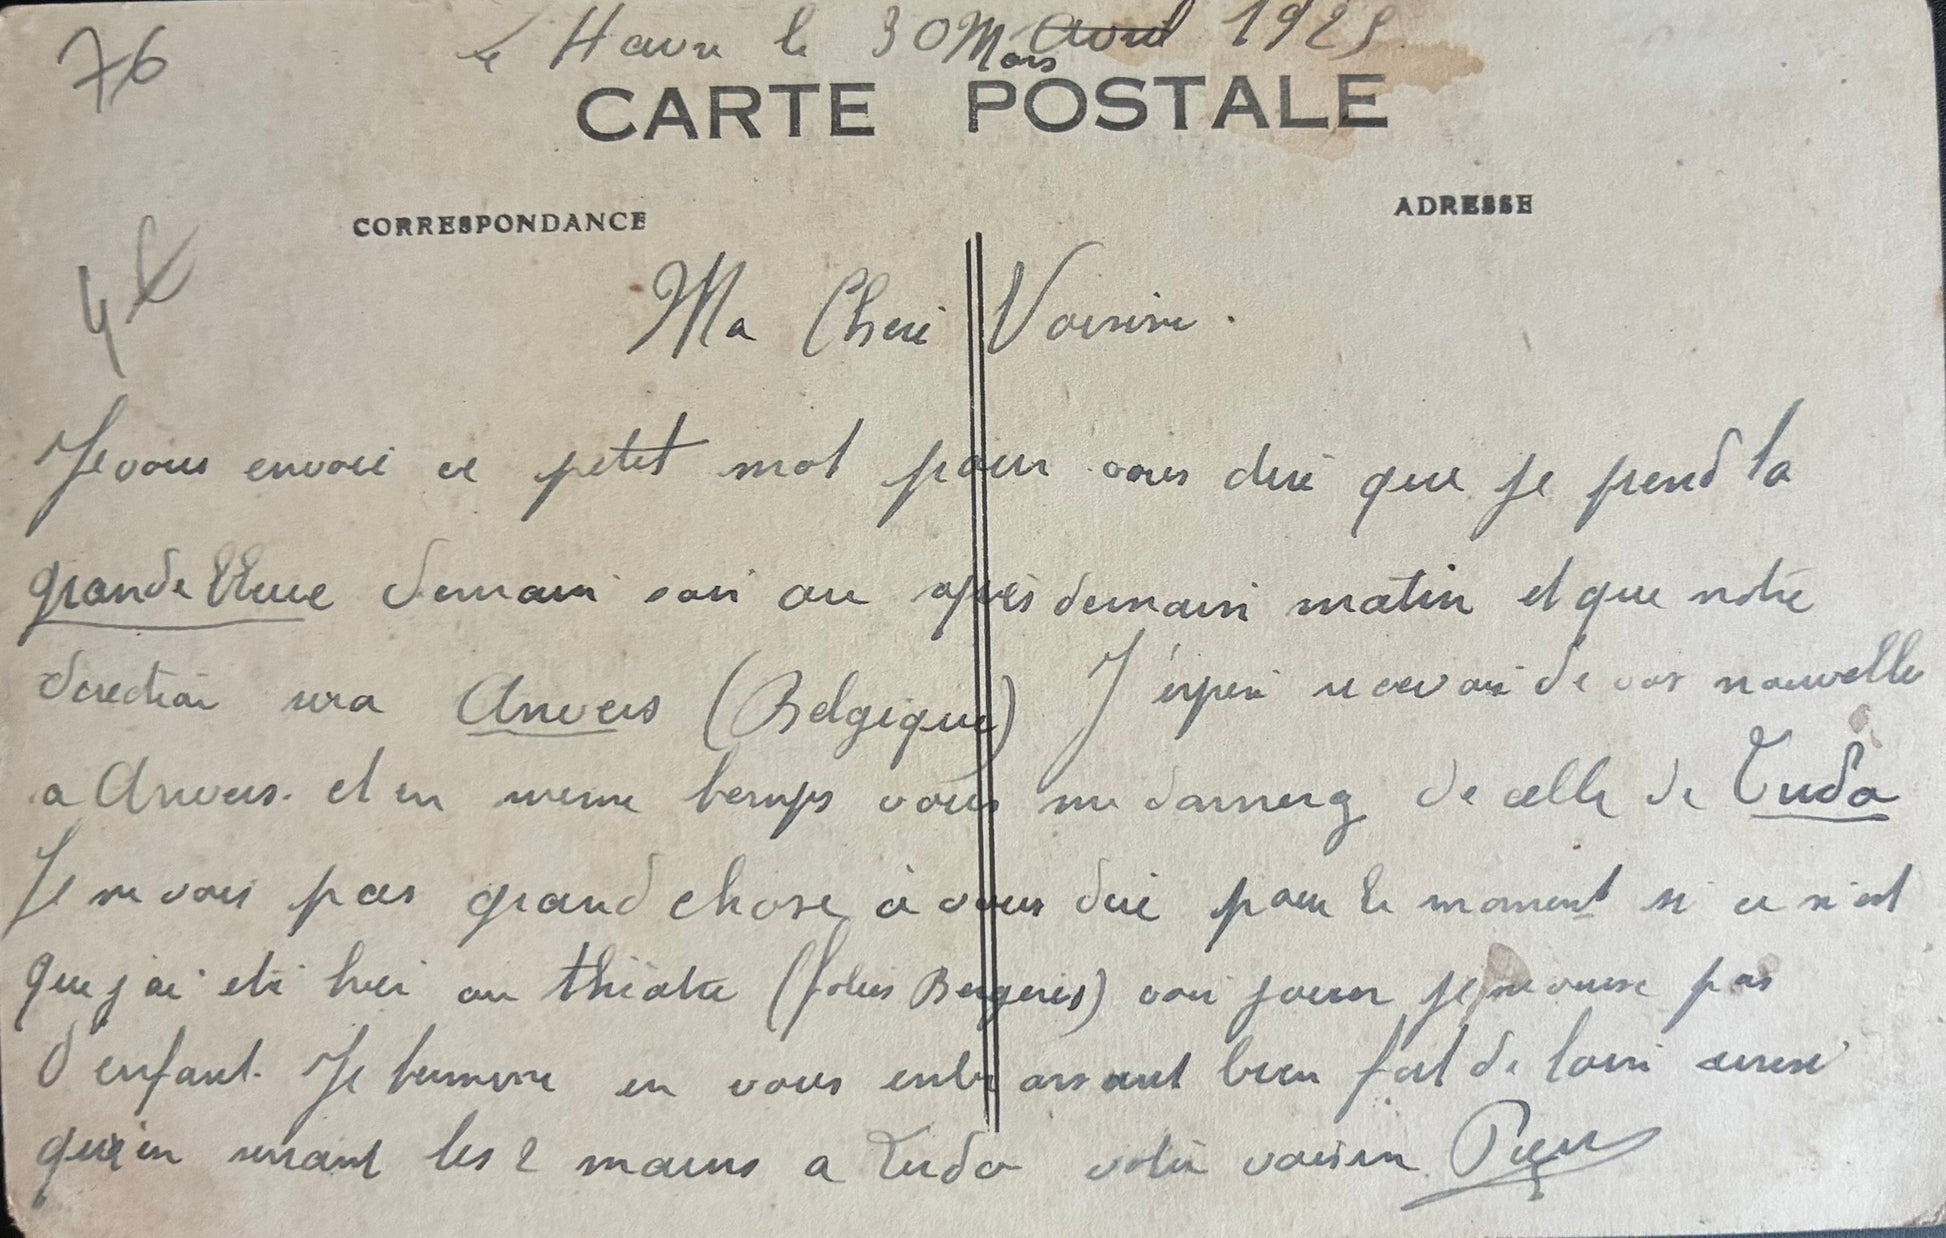 76
Le Havre le 30 Mars avril 1925
CARTE POSTALE
CORRESPONDANCE
ADRESSE
4€
Ma Cheri Voisine.
Je vous envoie ce petit mot pour vous dire que je prend la
grande bleue demain soir ou après demain matin et que notre
direction sera Anvers (Belgique) J'éspere recevoir de vos nouvelle
a Anvers. et en meme temps vous me donnerez de celle de Tuda
Je ne vois pas grand chose à vous dire pour le moment si ce n'est
que j'ai eté hier au théâtre (folies Bergeres) voir jouer pas
d'enfant. Je termine en vous embrassant bien fort de loin aussi
qu'en serrant les 2 mains a Tuda votre voisin